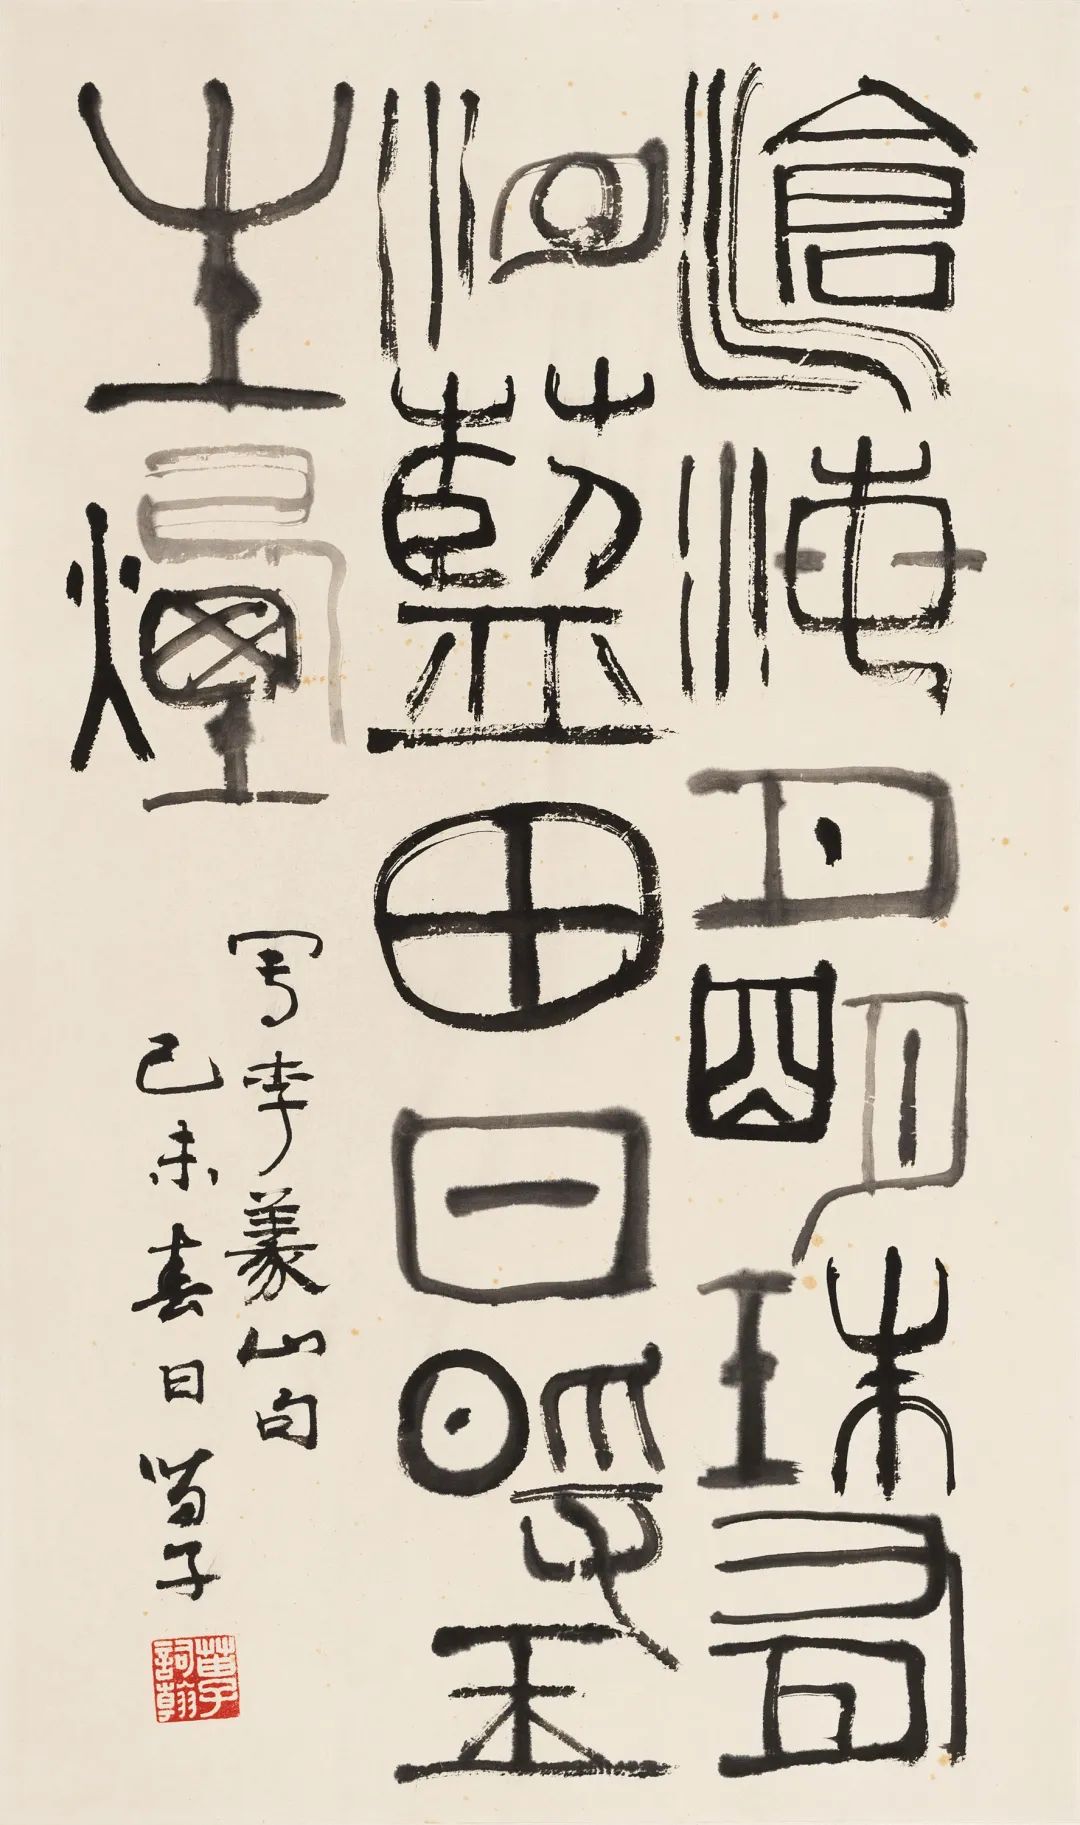 滄海月明珠有
泪藍田日暖玉
生煙
写李義山句
己未春日苗子
苗子
詞翰